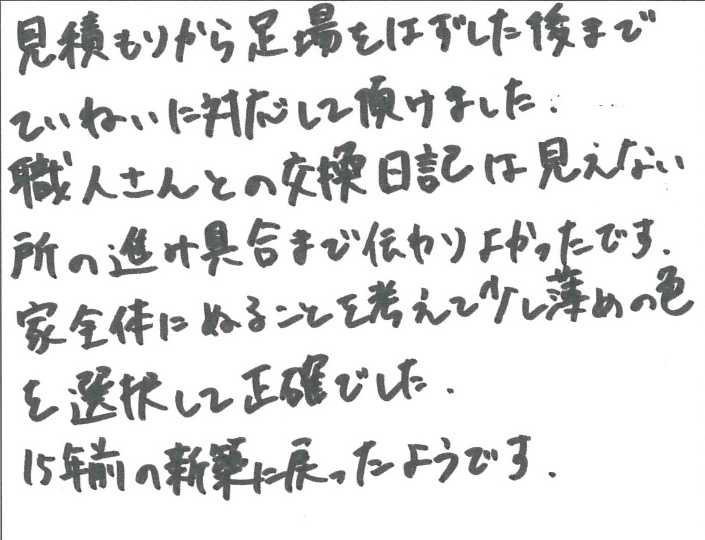 見積もりから足場をはずした後まで
ていねいに対応して頂けました.
職人さんとの交換日記は見えない
所の進け具合まで伝わりよかったです.
家全体にぬることを考えて少し薄めの色
を選択して正確でした.
15年前の新築に戻ったようです.